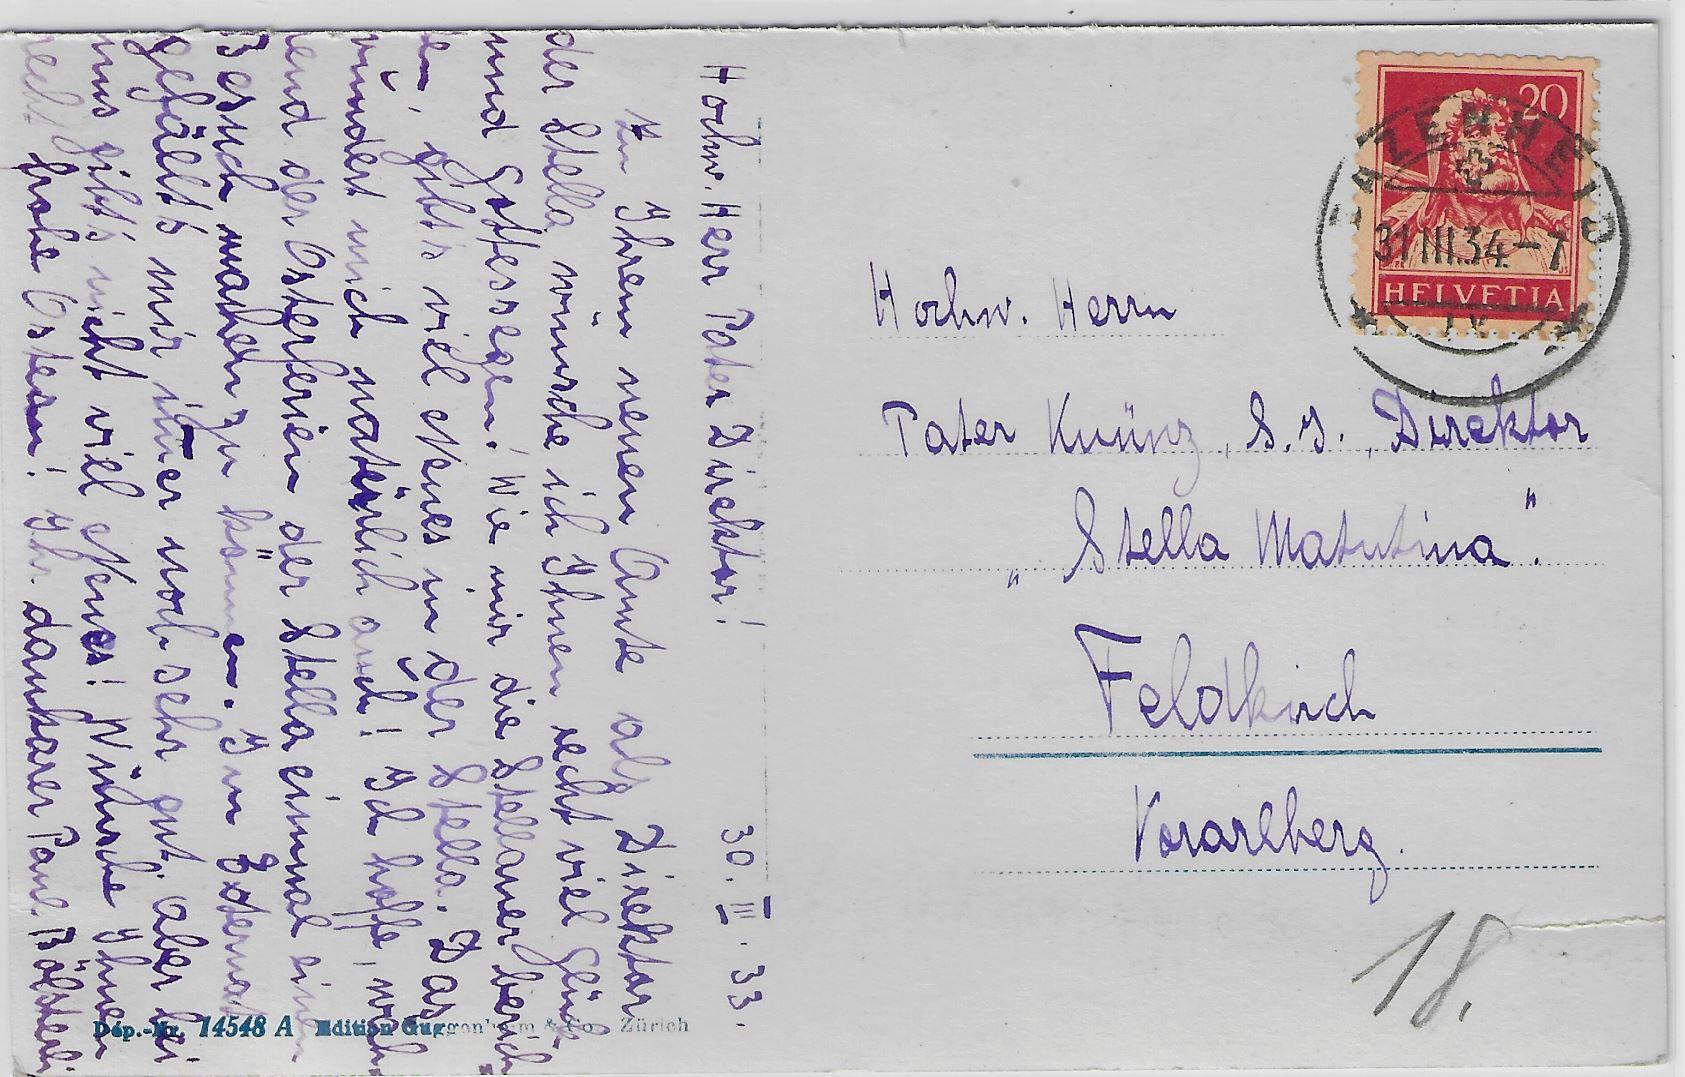 Hochw. Herr Pater Direktor!
30. III. 33.
Zu Ihrem neuen Amte als Direktor
der Stella wünsche ich Ihnen recht viel Glück
und Gottessegen! Wie mir die Stellaner berich-
ten, gibt's viel Neues in der Stella. Das
wundert mich natürlich auch! Ich hoffe, wäh-
rend der Osterferien der Stella einmal einen
Besuch machen zu können. Im
gefällt's mir immer noch sehr gut, aber bei
uns gibt's nicht viel Neues! Wünsche Ihnen
recht frohe Ostern! Ihr dankbarer Paul
Dép.-Nr. 14548 A Edition Guggenheim & Co. Zürich
20
HELVETIA
BAZENHEID
31.III.34.-7
Hochw. Herrn
Pater Knünz, S.J., Direktor
„Stella Matutina".
Feldkirch
Vorarlberg.
18.